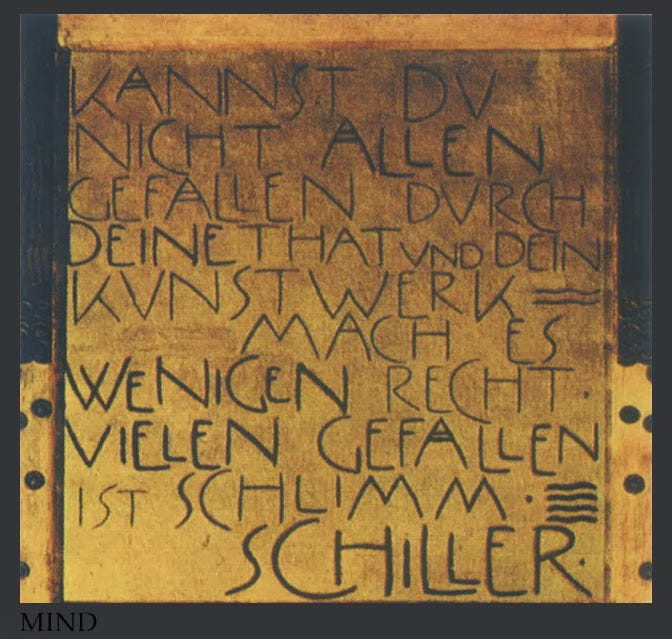 KANNST DV
NICHT ALLEN
GEFALLEN DVRCH
DEINE THAT VND DEIN
KVNSTWERK =
MACH ES
WENIGEN RECHT.
VIELEN GEFALLEN
IST SCHLIMM.
SCHILLER.
MIND